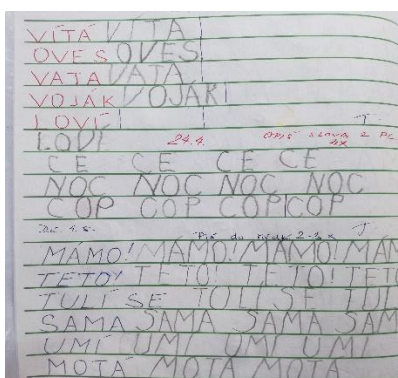 VÍTÁ VÍTÁ
OVES OVES
VATA VATA
VOJÁK VOJÁK
LOVÍ
LOVÍ 24.4. OPIŠ SLOVA Z
CE CE CE CE
NOC NOC NOC NOC
COP COP COP COP
Piš do řádků 2-3x
MÁMO! MÁMO! MÁMO! MÁM
TETO! TETO! TETO! TETO
TULÍ SE TULÍ SE TUL
SAMA SAMA SAMA SAM
UMÍ UMÍ UMÍ UMÍ
MOTÁ MOTÁ MOTÁ